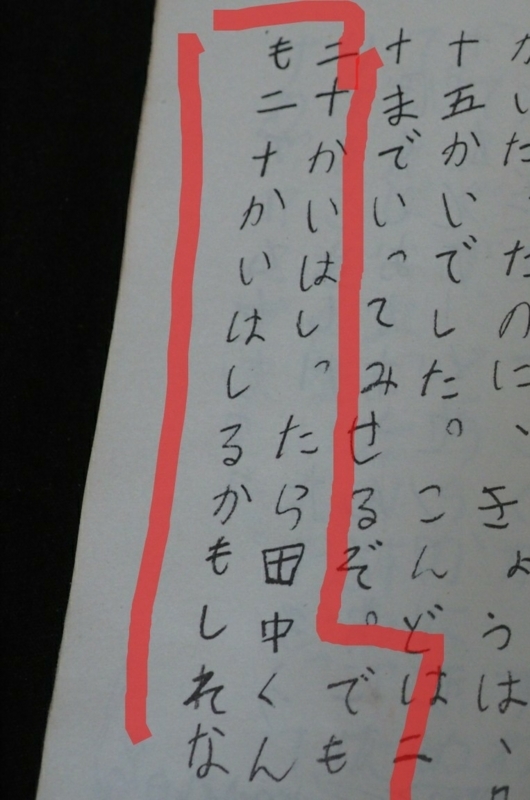 かいだったのに、きょうは、
十五かいでした。こんどは二
十までいってみせるぞ。でも
二十かいはしったら田中くん
も二十かいはしるかもしれな